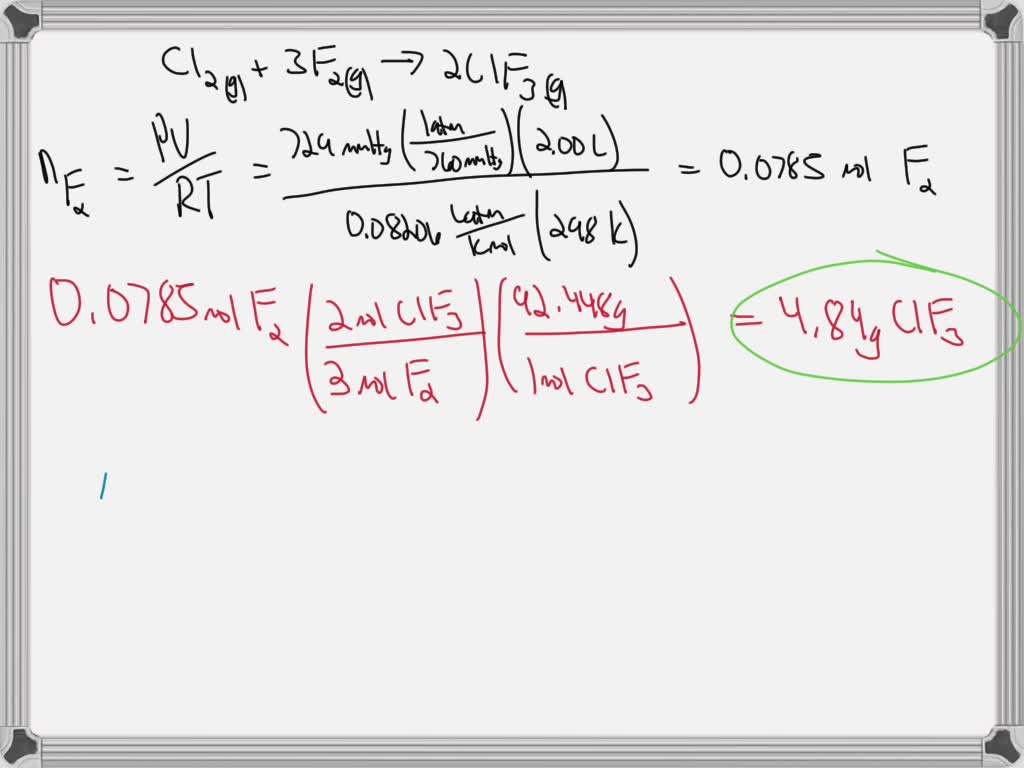 Cl₂(g) + 3F₂(g) → 2ClF₃(g)
n_F₂ = PV/RT = 729 mmHg (1atm/760mmHg)(2.00 L) / 0.08206 Latm/Kmol (298 K) = 0.0785 mol F₂
0.0785 mol F₂ (2 mol ClF₃/3 mol F₂)(92.448g/1mol ClF₃) = 4.84g ClF₃